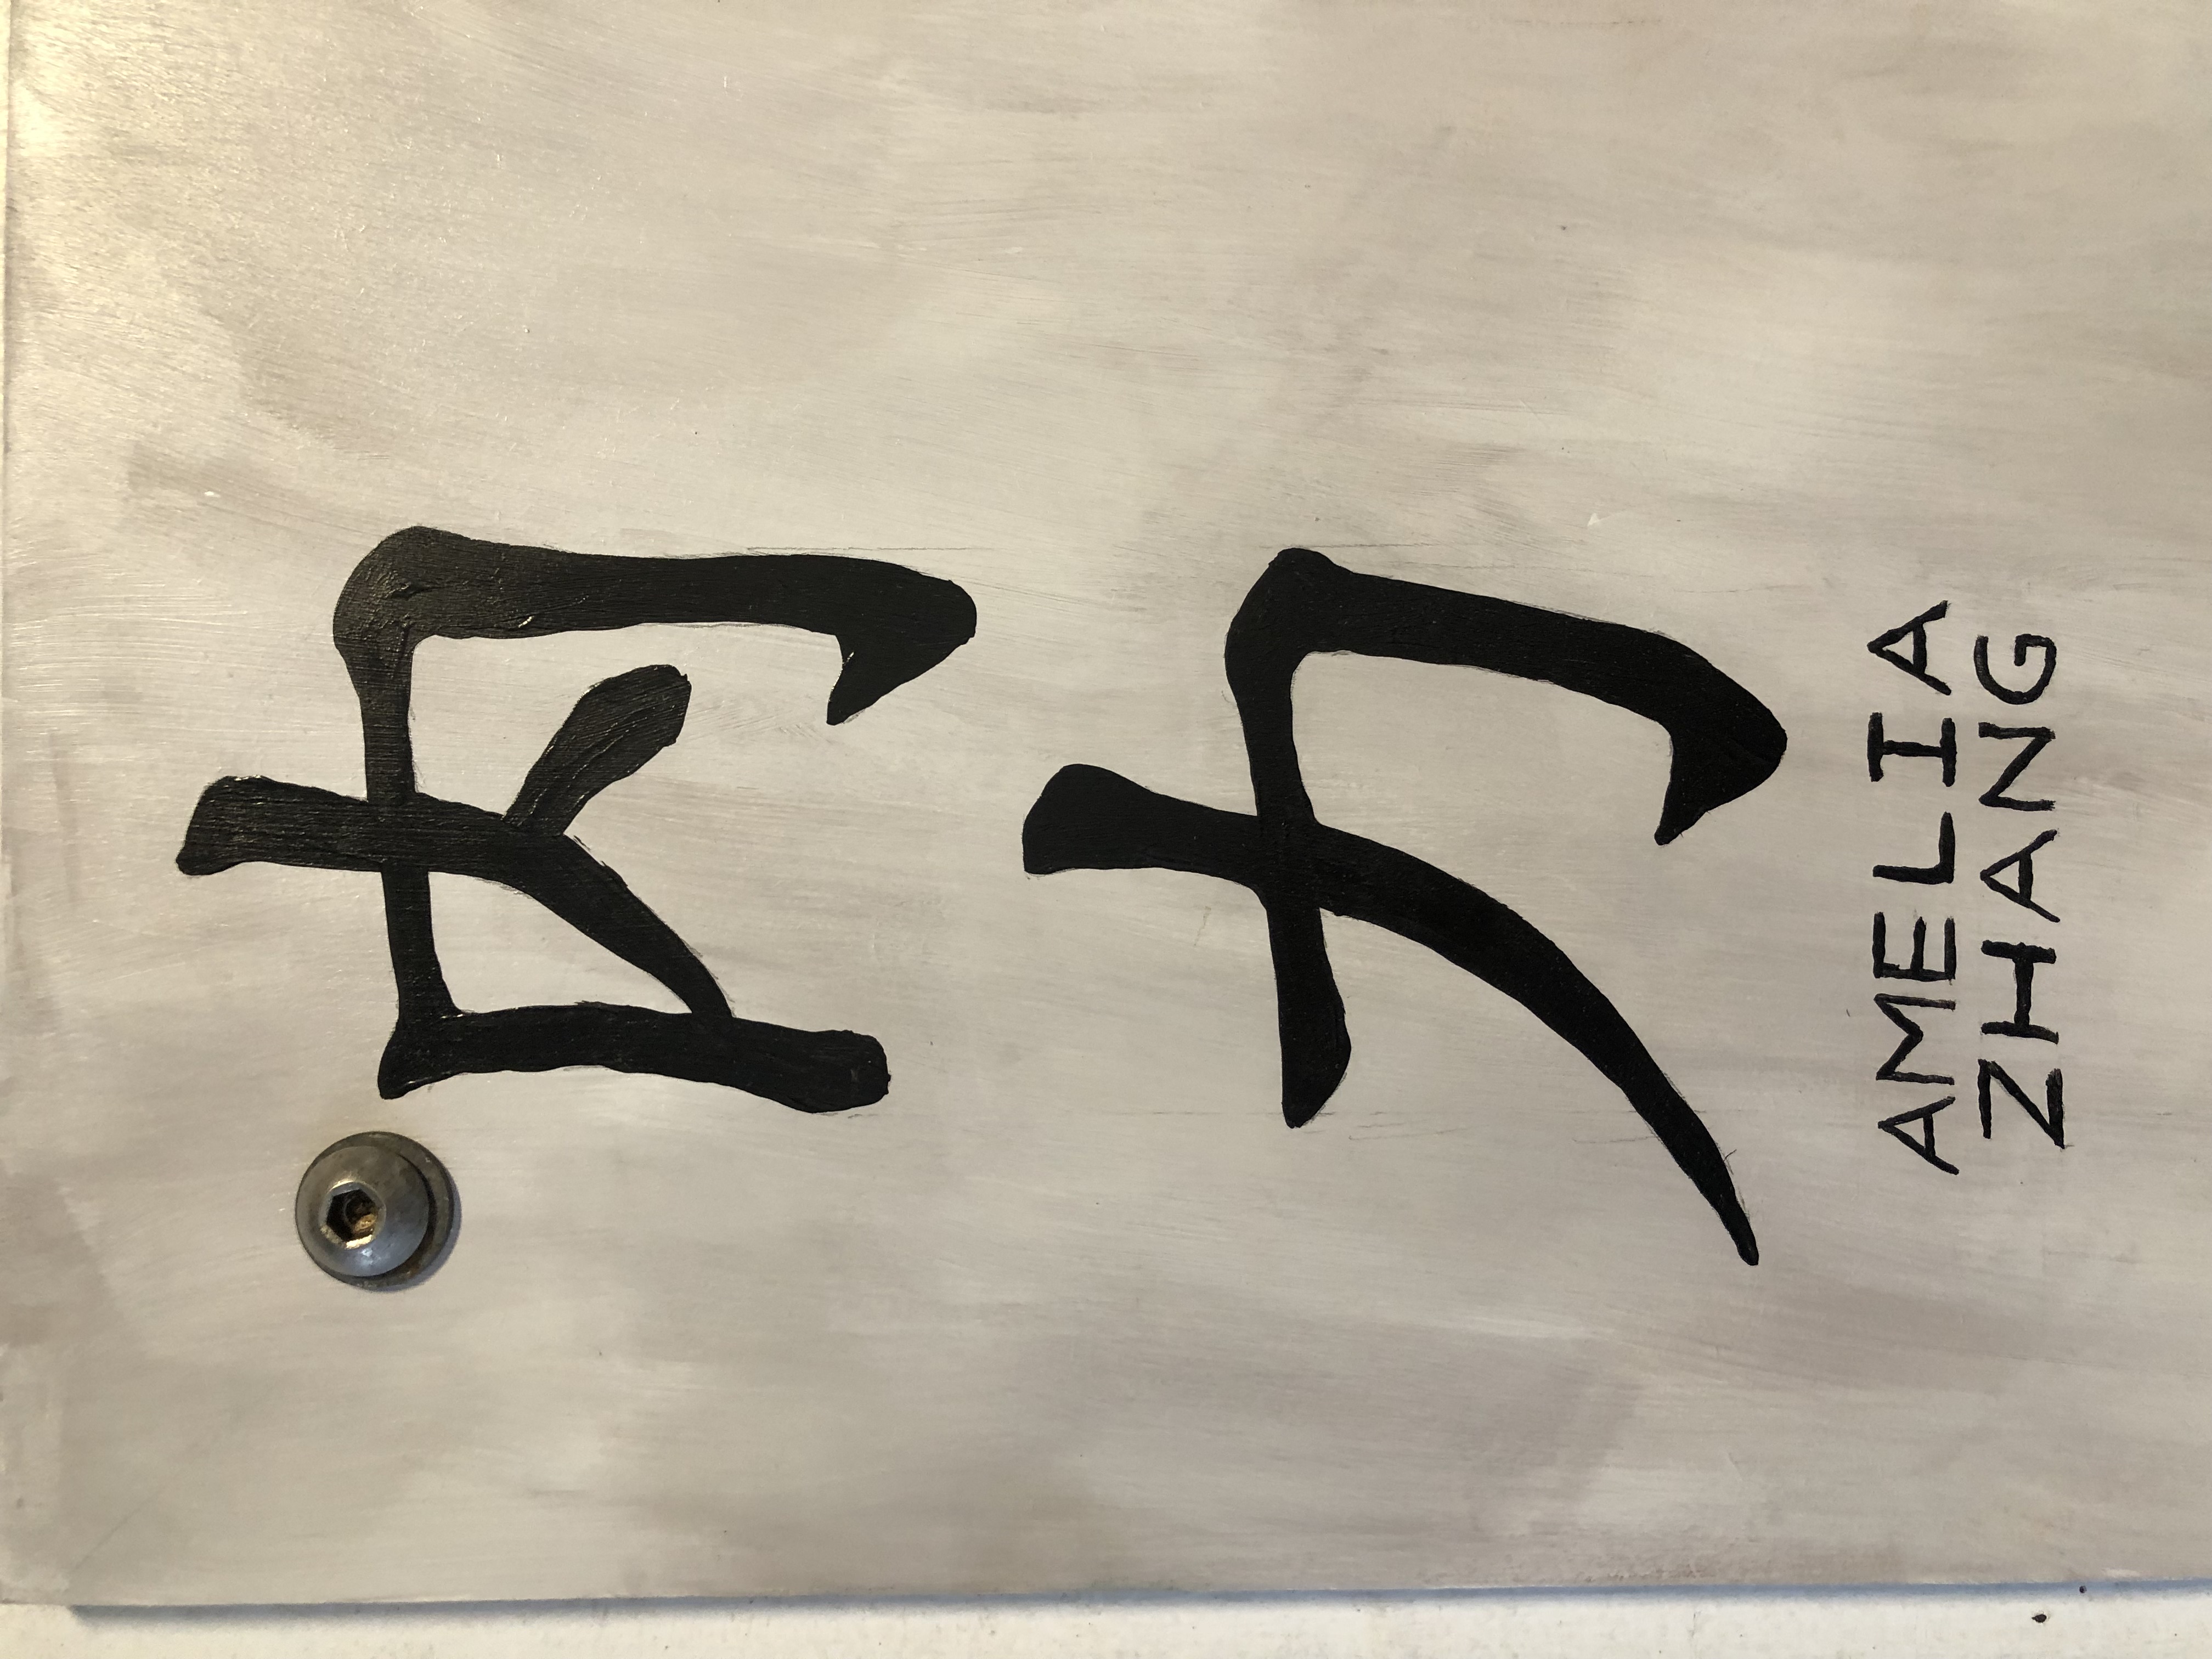 内力
AMELIA
ZHANG